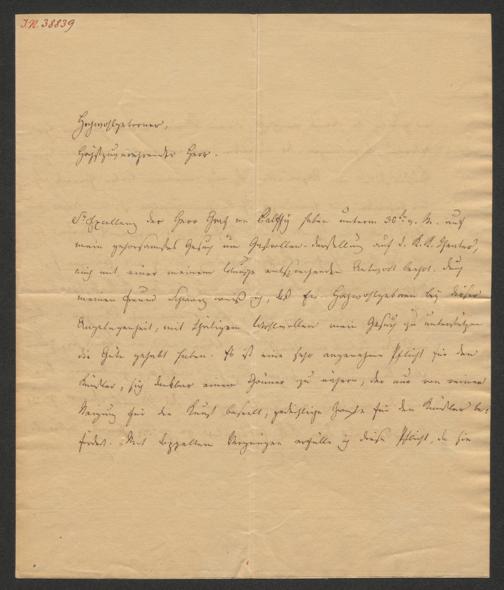 I.N. 38839
Hochwohlgeborner,
Höchstzuverehrender Herr.
Se Excellenz der Herr Graf von Palffy haben unterm 30ten v. M. auf
mein gehorsamstes Gesuch um Gastrollen-Darstellung auf d. K. K. Theater,
mich mit einer meinem Wunsche entsprechenden Antwort beehrt. Durch
meinen Freund weiß ich, daß Ew. Hochwohlgeboren bey dieser
Angelegenheit, mit thätigem Wohlwollen mein Gesuch zu unterstützen
die Güte gehabt haben. Es ist eine sehr angenehme Pflicht für den
Künstler, sich dankbar einem Gönner zu nähern, der nur von reiner
Neigung für die Kunst beseelt, für den Künstler be-
. Mit doppeltem Vergnügen erfülle ich diese Pflicht, da sie